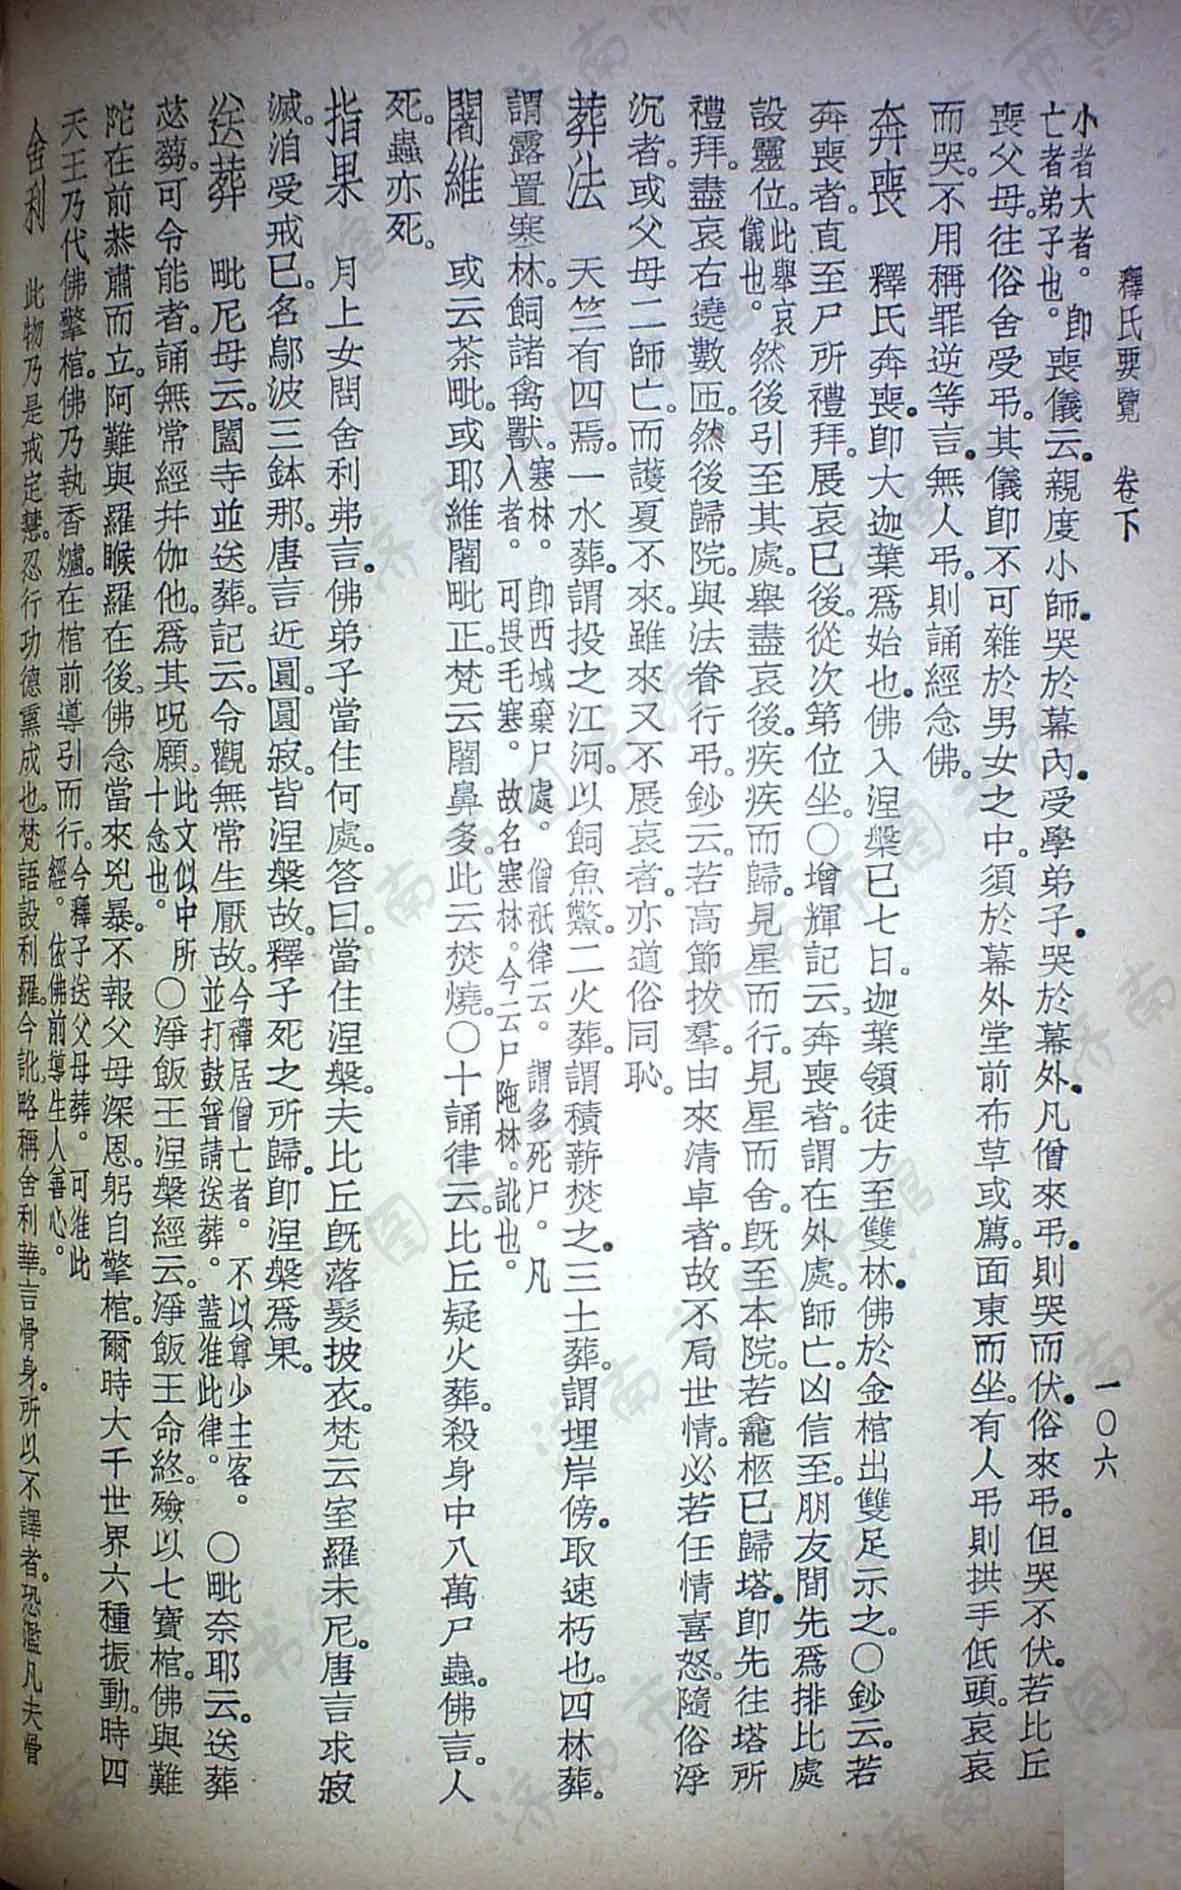 釋氏要覽　卷下　一〇六
小者大者。卽亡者弟子也。喪儀云。親度小師。哭於幕內。受學弟子。哭於幕外。凡僧來弔。則哭而伏。俗來弔。但哭不伏。若比丘
喪父母。往俗舍受弔。其儀卽不可雜於男女之中。須於幕外堂前布草或薦。面東而坐。有人弔則拱手低頭。哀哀
而哭。不用稱罪逆等言。無人弔。則誦經念佛。
奔喪　釋氏奔喪。卽大迦葉爲始也。佛入涅槃已七日。迦葉領徒方至雙林。佛於金棺出雙足示之。〇鈔云。若
奔喪者。直至尸所禮拜。展哀已後。從次第位坐。〇增輝記云。奔喪者。謂在外處。師亡。凶信至。朋友間先爲排比處
設靈位。此舉哀儀也。然後引至其處。舉盡哀後。疾疾而歸。見星而行。見星而舍。旣至本院。若龕柩已歸塔。卽先往塔所
禮拜。盡哀右遶數匝。然後歸院。與法眷行弔。鈔云。若高節拔羣。由來清卓者。故不局世情。必若任情喜怒。隨俗浮
沉者。或父母二師亡。而護夏不來。雖來又不展哀者。亦道俗同恥。
葬法　天竺有四焉。一水葬。謂投之江河。以飼魚鱉。二火葬。謂積薪焚之。三土葬。謂埋岸傍。取速朽也。四林葬。
謂露置寒林。飼諸禽獸。寒林。卽西域棄尸處。僧祇律云。謂多死尸。凡入者。可畏毛寒。故名寒林。今云尸陁林。訛也。
闍維　或云茶毗。或耶維闍毗。正梵云闍鼻多。此云焚燒。〇十誦律云。比丘疑火葬。殺身中八萬尸蟲。佛言。人
死。蟲亦死。
指果　月上女問舍利弗言。佛弟子當住何處。答曰。當住涅槃。夫比丘旣落髮披衣。梵云室羅末尼。唐言求寂
滅。洎受戒已。名鄔波三鉢那。唐言近圓。圓寂。皆涅槃故。釋子死之所歸。卽涅槃爲果。
送葬　毗尼母云。闔寺並送葬。記云。令觀無常生厭故。今禪居僧亡者。不以尊少主客。並打鼓普請送葬。蓋准此律。〇毗奈耶云。送葬
苾蒭。可令能者。誦無常經幷伽他。爲其呪願。此文似中所十念也。〇淨飯王涅槃經云。淨飯王命終。殮以七寶棺。佛與難
陀在前恭肅而立。阿難與羅睺羅在後。佛念當來兇暴。不報父母深恩。躬自擎棺。爾時大千世界六種振動。時四
天王乃代佛擎棺。佛乃執香爐。在棺前導引而行。今釋子送父母葬。可准此經。依佛前導生人善心。
舍利　此物乃是戒定慧。忍行功德熏成也。梵語設利羅。今訛略稱舍利。華言骨身。所以不譯者。恐濫凡夫骨